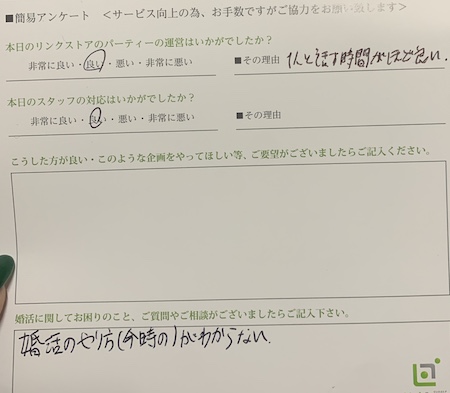 ■簡易アンケート ＜サービス向上の為、お手数ですがご協力をお願い致します＞
本日のリンクストアのパーティーの運営はいかがでしたか？
非常に良い・良い・悪い・非常に悪い ■その理由 1人と話す時間がほど良い.
本日のスタッフの対応はいかがでしたか？
非常に良い・良い・悪い・非常に悪い ■その理由
こうした方が良い・このような企画をやってほしい等、ご要望がございましたらご記入ください。
婚活に関してお困りのこと、ご質問やご相談がございましたらご記入下さい。
婚活のやり方(今時の)がわからない.